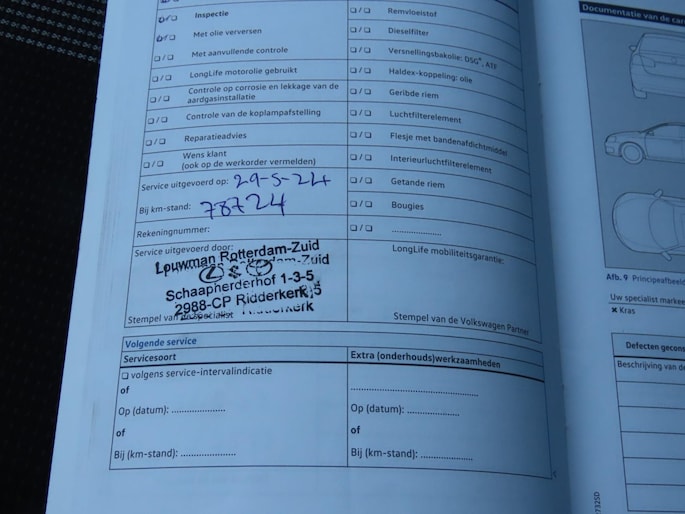 Inspectie
Met olie verversen
Met aanvullende controle
LongLife motorolie gebruikt
Controle op corrosie en lekkage van de
aardgasinstallatie
Controle van de koplampafstelling
Reparatieadvies
Wens klant
(ook op de werkorder vermelden)
Service uitgevoerd op: 29-5-24
Bij km-stand: 78724
Rekeningnummer:
Service uitgevoerd door:
Louwman Rotterdam-Zuid
Schaapherderhof 1-3-5
2988-CP Ridderkerk
Stempel van de specialist
Remvloeistof
Dieselfilter
Versnellingsbakolie: DSG®, ATF
Haldex-koppeling: olie
Geribde riem
Luchtfilterelement
Flesje met bandenafdichtmiddel
Interieurluchtfilterelement
Getande riem
Bougies
....................
LongLife mobiliteitsgarantie:
Stempel van de Volkswagen Partner
Volgende service
Servicesoort
Extra (onderhouds)werkzaamheden
volgens service-intervalindicatie
of
Op (datum): .....................
of
Bij (km-stand): .....................
.....................
Op (datum): .....................
of
Bij (km-stand): .....................
Documentatie van de
Afb. 9
Uw specialist
Kras
Defecten
Beschrijving van
732SD